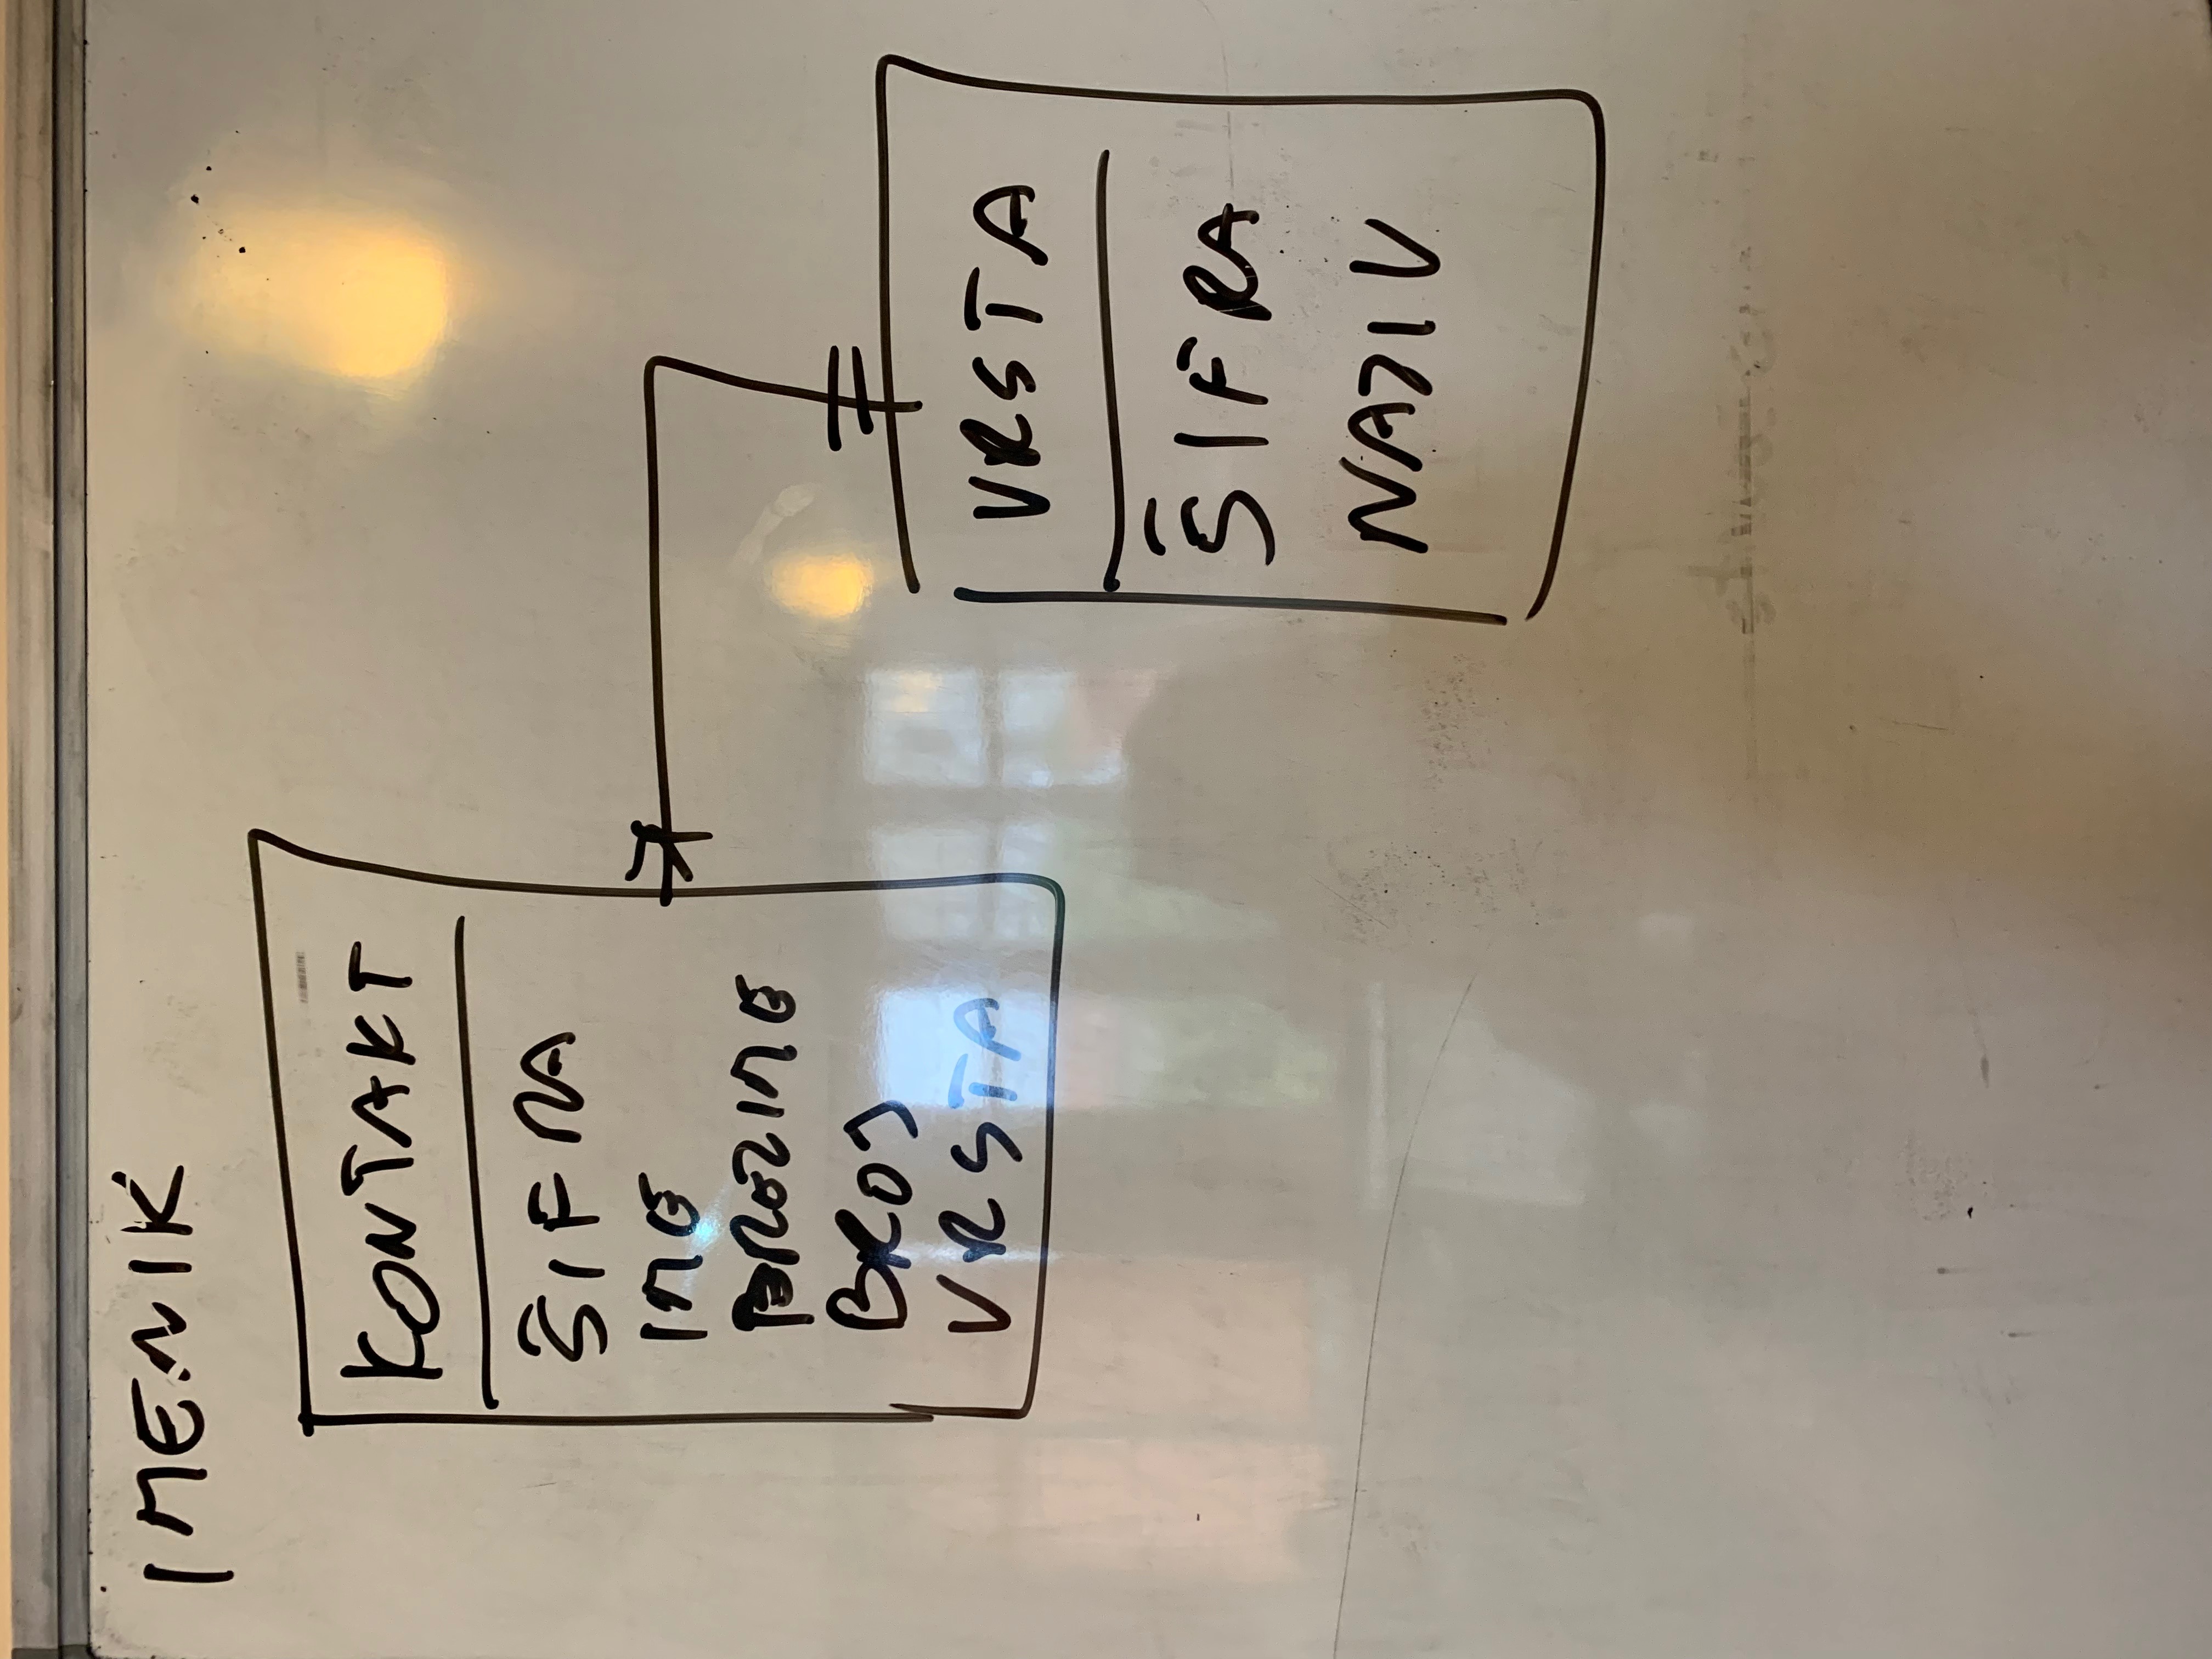 IMENIK
KONTAKT
ŠIFRA
IME
PREZIME
BROJ
VRSTA
VRSTA
ŠIFRA
NAZIV